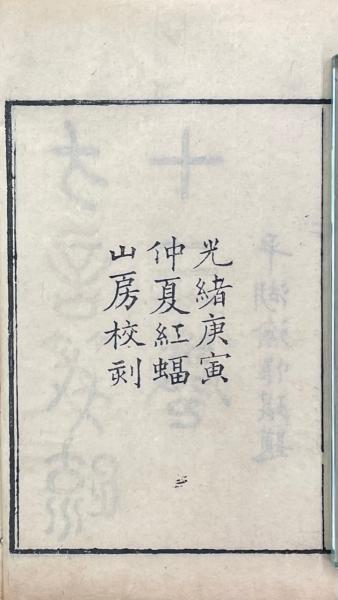 光緒庚寅
仲夏紅蝠
山房校刻